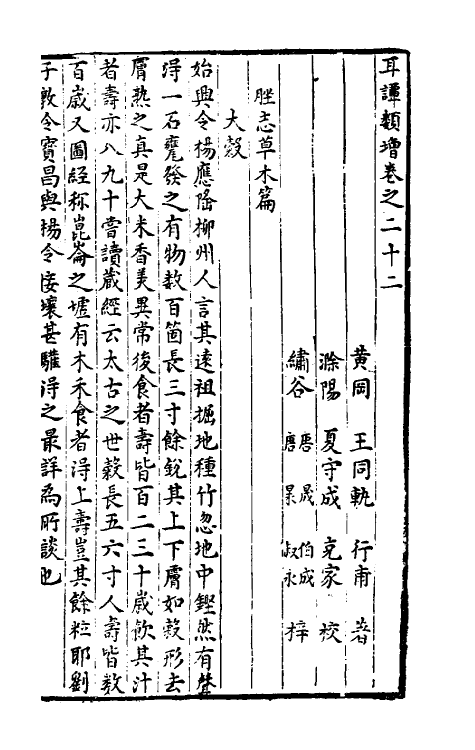 耳譚類增卷之二十二
黃岡　王同軌　行甫　著
滁陽　夏守成　克家　校
繡谷　唐晟　伯成　唐㫤　叔永　梓
脞志草木篇
大穀
始興令楊應隆柳州人言其遠祖掘地種竹忽地中鏗然有聲
淂一石甕發之有物数百箇長三寸餘銳其上下膚如穀形去
膚熟之真是大米香美異常後食者壽皆百二三十歲飲其汁
者壽亦八九十嘗讀藏經云太古之世穀長五六寸人壽皆数
百歲又圖經称崑崙之墟有木禾食者淂上壽豈其餘粒耶劉
子敦令寶昌與楊令接壤甚驩淂之最詳為所談也